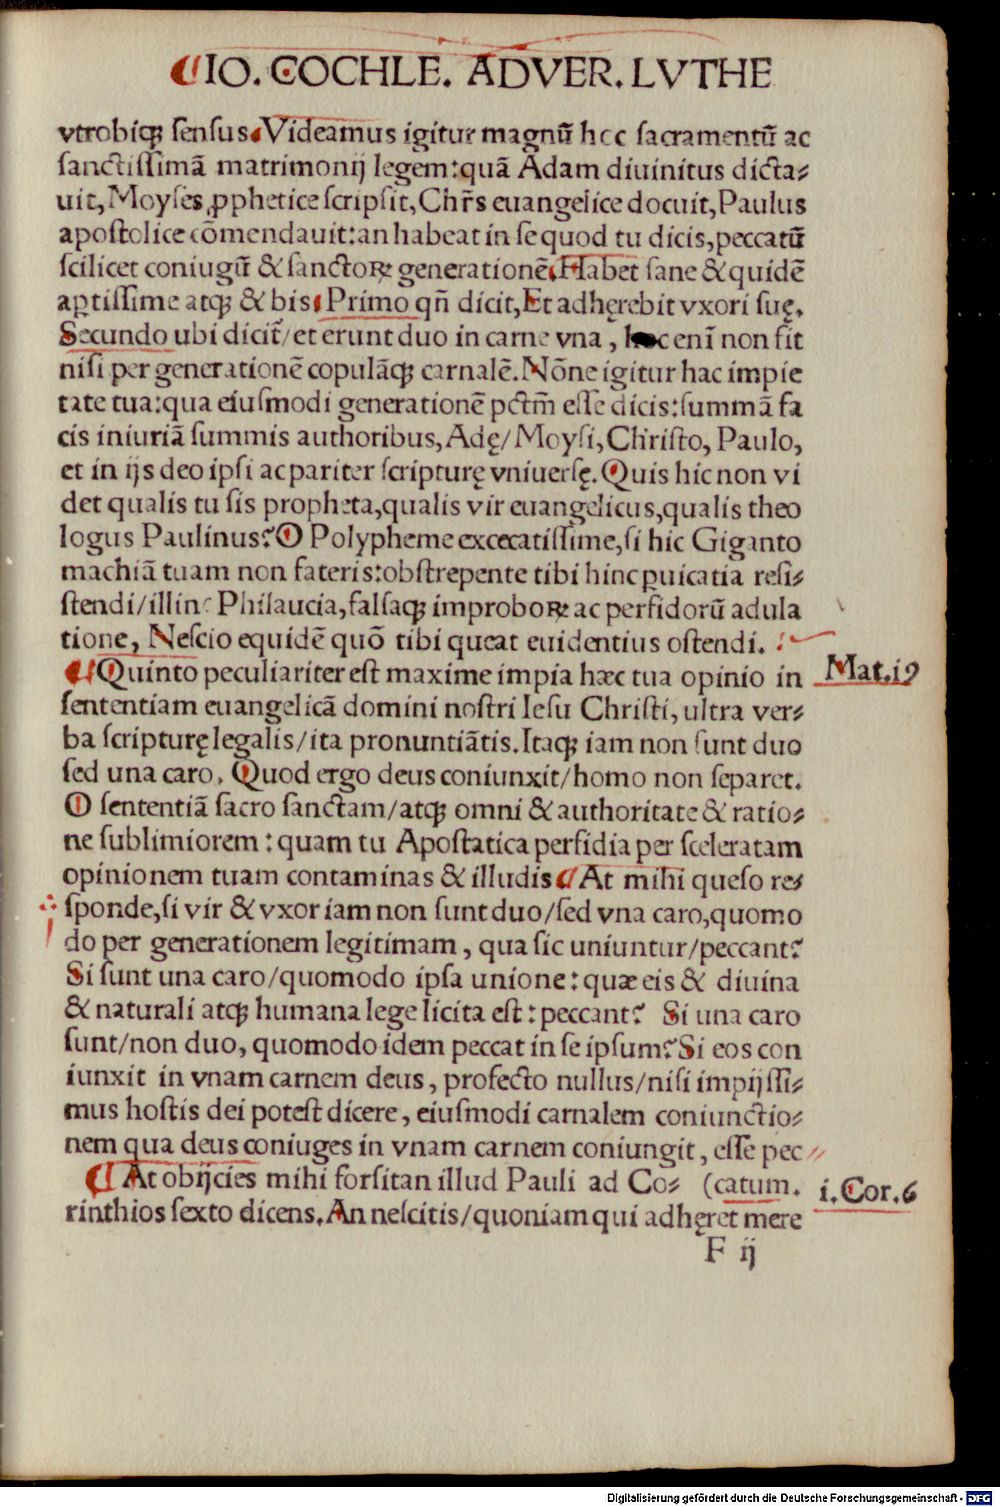 ¶IO. COCHLE. ADVER. LVTHE
vtrobiqꝫ sensus. Videamus igitur magnū hoc sacramentū ac
sanctissimā matrimonij legem: quā Adam diuinitus dicta⸗
uit, Moyses ꝓphetice scripsit, Chr̄s euangelice docuit, Paulus
apostolice cōmendauit: an habeat in se quod tu dicis, peccatū
scilicet coniugū & sanctoꝝ generationē. Habet sane & quidē
aptissime atqꝫ & bis. Primo qn̄ dicit, Et adhęrebit vxori suę.
Secundo ubi dicit/ et erunt duo in carne vna, hoc enī non fit
nisi per generationē copulāqꝫ carnalē. Nōne igitur hac impie
tate tua: qua eiusmodi generationē pctm̄ esse dicis: summā fa
cis iniuriā summis authoribus, Adę/ Moysi, Christo, Paulo,
et in ijs deo ipsi ac pariter scripturę vniuersę. Quis hic non vi
det qualis tu sis propheta, qualis vir euangelicus, qualis theo
logus Paulinus? O Polypheme excecatissime, si hic Giganto
machiā tuam non fateris: obstrepente tibi hinc ꝑuicatia resi⸗
stendi/ illinc Philaucia, falsaqꝫ improboꝝ ac perfidorū adula
tione, Nescio equidē quō tibi queat euidentius ostendi.
¶Quinto peculiariter est maxime impia hæc tua opinio in
Mat.19
sententiam euangelicā domini nostri Iesu Christi, ultra ver⸗
ba scripturę legalis/ ita pronuntiātis. Itaqꝫ iam non sunt duo
sed una caro. Quod ergo deus coniunxit/ homo non separet.
O sententiā sacro sanctam/ atqꝫ omni & authoritate & ratio⸗
ne sublimiorem: quam tu Apostatica perfidia per sceleratam
opinionem tuam contaminas & illudis ¶At mihi queso re⸗
sponde, si vir & vxor iam non sunt duo/ sed vna caro, quomo
do per generationem legitimam, qua sic uniuntur/ peccant?
Si sunt una caro/ quomodo ipsa unione: quæ eis & diuina
& naturali atqꝫ humana lege licita est: peccant? Si una caro
sunt/ non duo, quomodo idem peccat in se ipsum? Si eos con
iunxit in vnam carnem deus, profecto nullus/ nisi impijssi⸗
mus hostis dei potest dicere, eiusmodi carnalem coniunctio⸗
nem qua deus coniuges in vnam carnem coniungit, esse pec
¶At obijcies mihi forsitan illud Pauli ad Co⸗ (catum.
i.Cor.6
rinthios sexto dicens. An nescitis/ quoniam qui adhęret mere
F ij
Digitalisierung gefördert durch die Deutsche Forschungsgemeinschaft - DFG